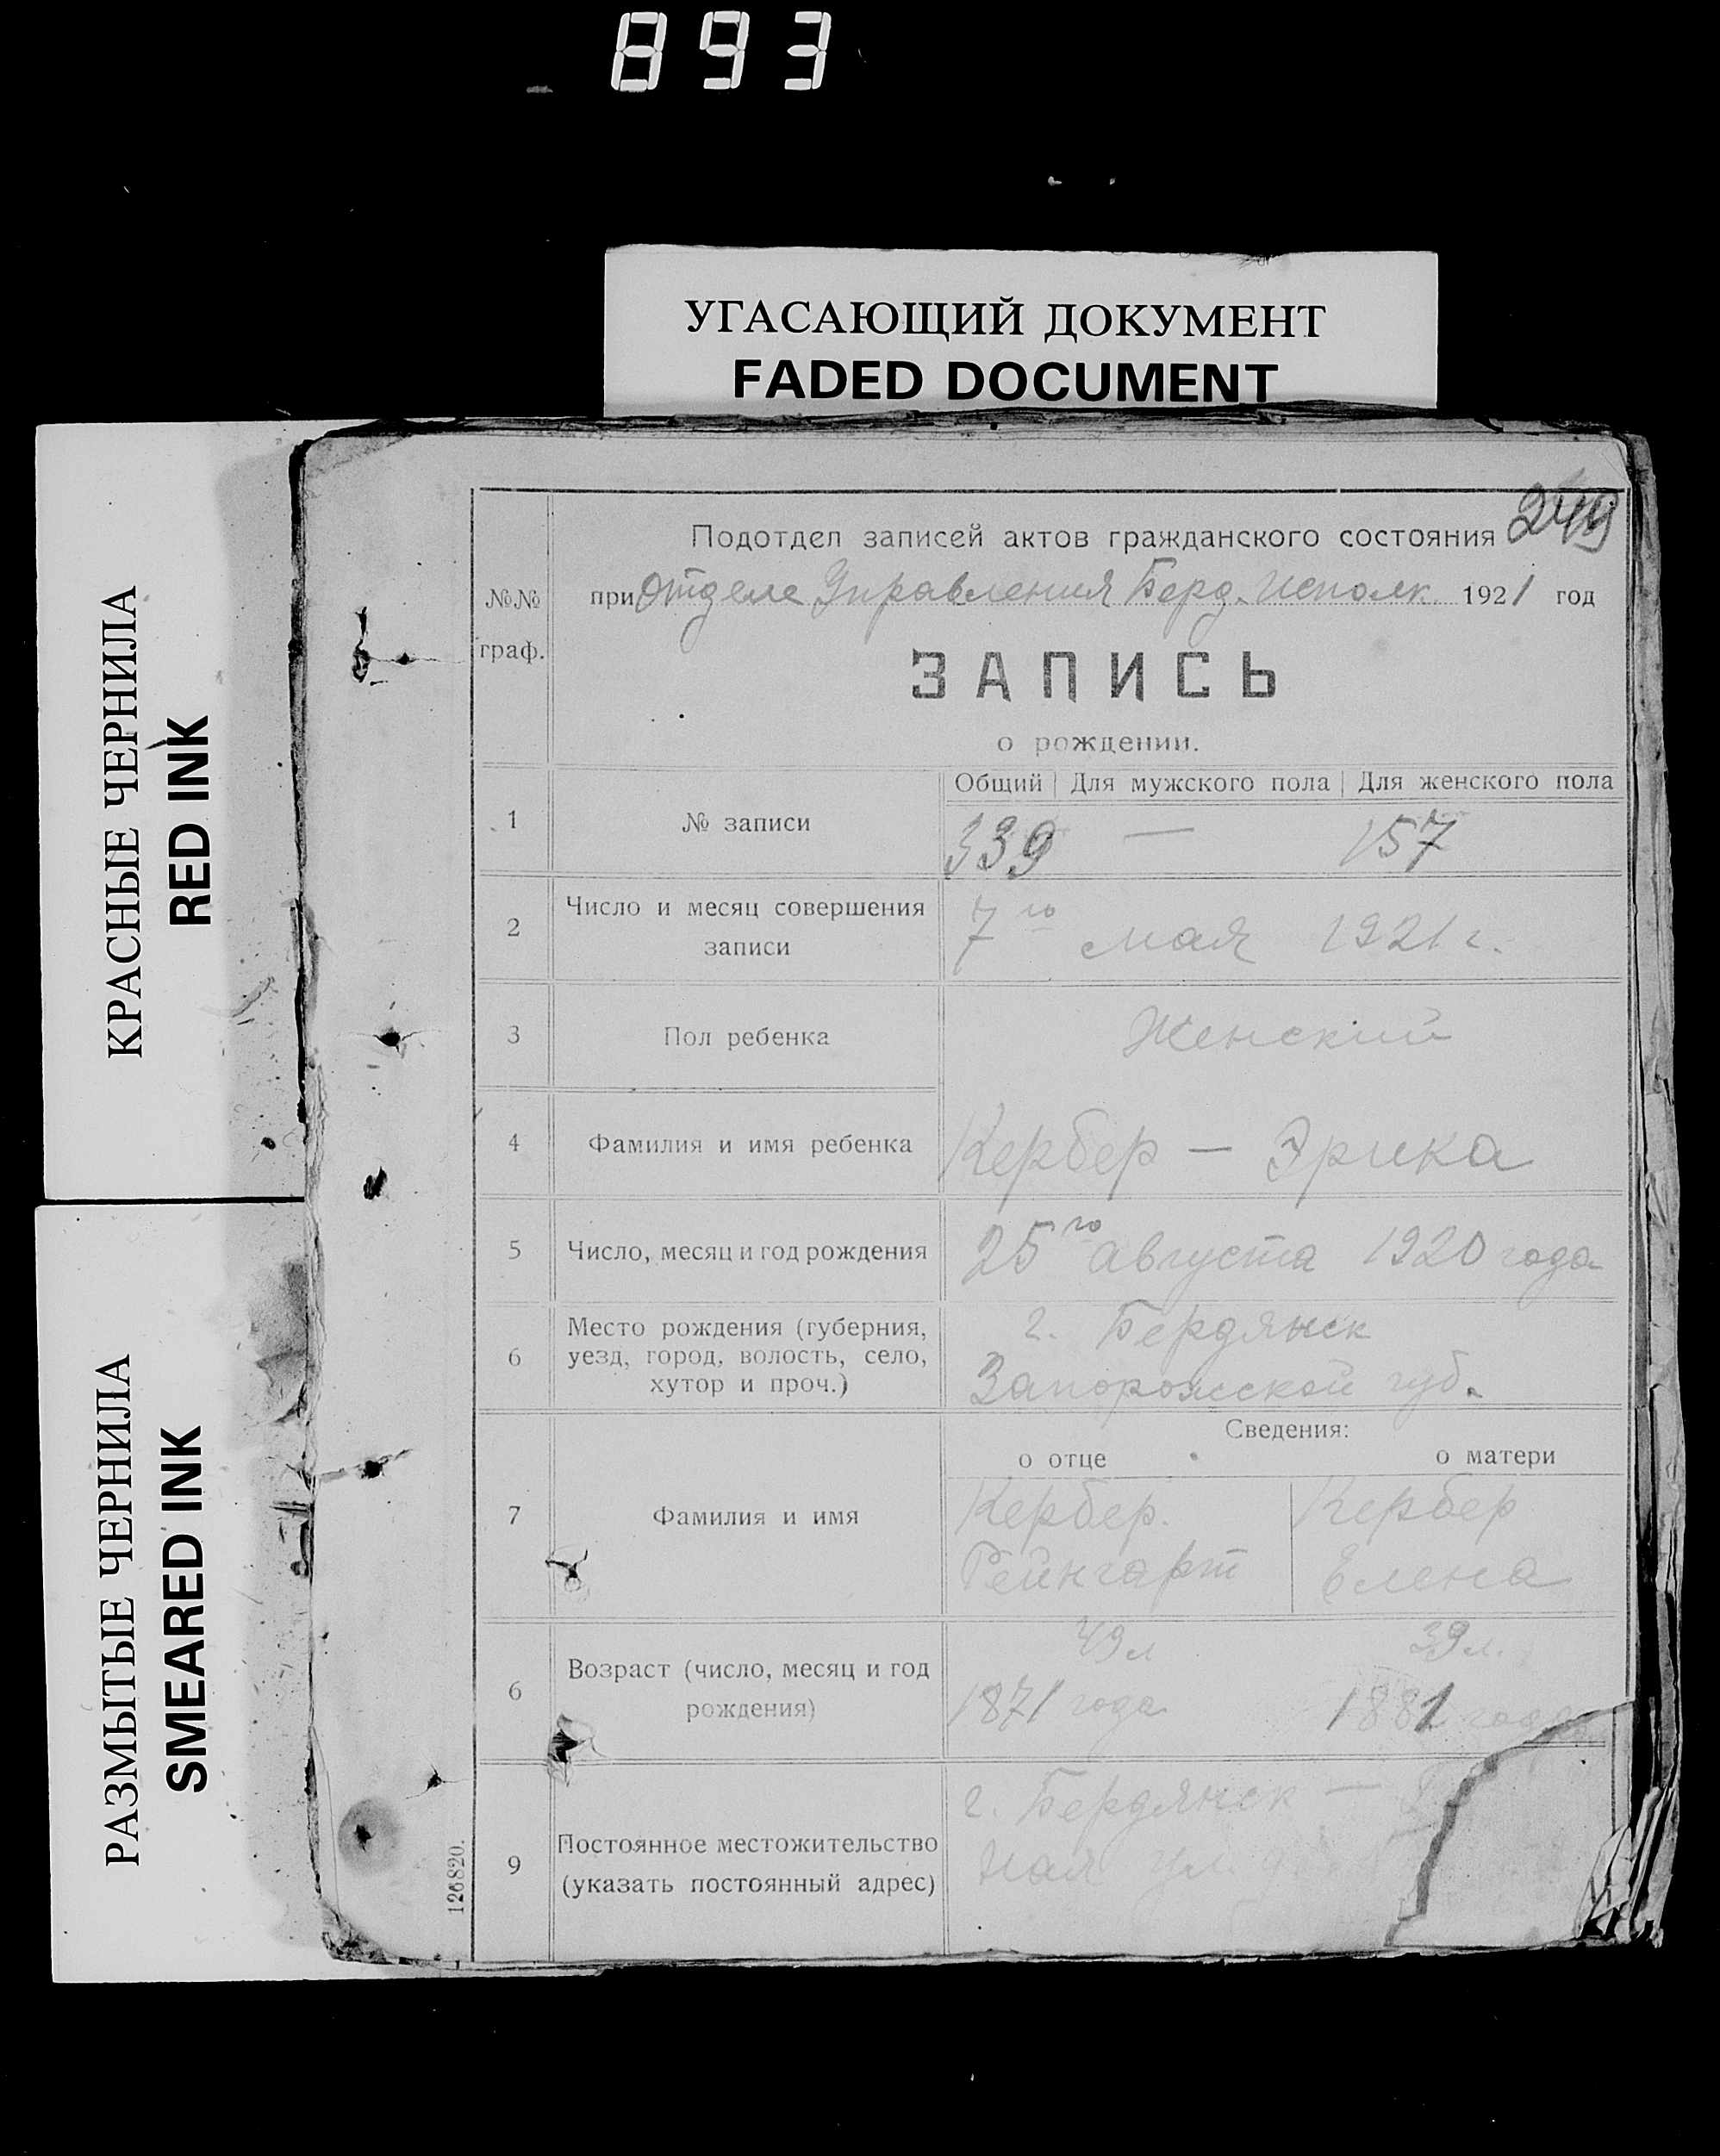 893
УГАСАЮЩИЙ ДОКУМЕНТ
FADED DOCUMENT
КРАСНЫЕ ЧЕРНИЛА
RED INK
РАЗМЫТЫЕ ЧЕРНИЛА
SMEARED INK
249
Подотдел записей актов гражданского состояния
№№ граф.
при Отделе Управления Берд. Исполк. 1921 год
ЗАПИСЬ
о рождении.
Общий Для мужского пола Для женского пола
1 № записи 339 — 157
2 Число и месяц совершения записи 7го мая 1921 г.
3 Пол ребенка Женский
4 Фамилия и имя ребенка Кербер — Эрика
5 Число, месяц и год рождения 25го августа 1920 года
6 Место рождения (губерния, уезд, город, волость, село, хутор и проч.)
г. Бердянск
Запорожской губ.
Сведения:
о отце о матери
7 Фамилия и имя
Кербер. Кербер
Рейнгарт Елена
6 Возраст (число, месяц и год рождения)
49 л 39 л.
1871 года 1881 года
9 Постоянное местожительство (указать постоянный адрес)
г. Бердянск —
ная ул.
126820.